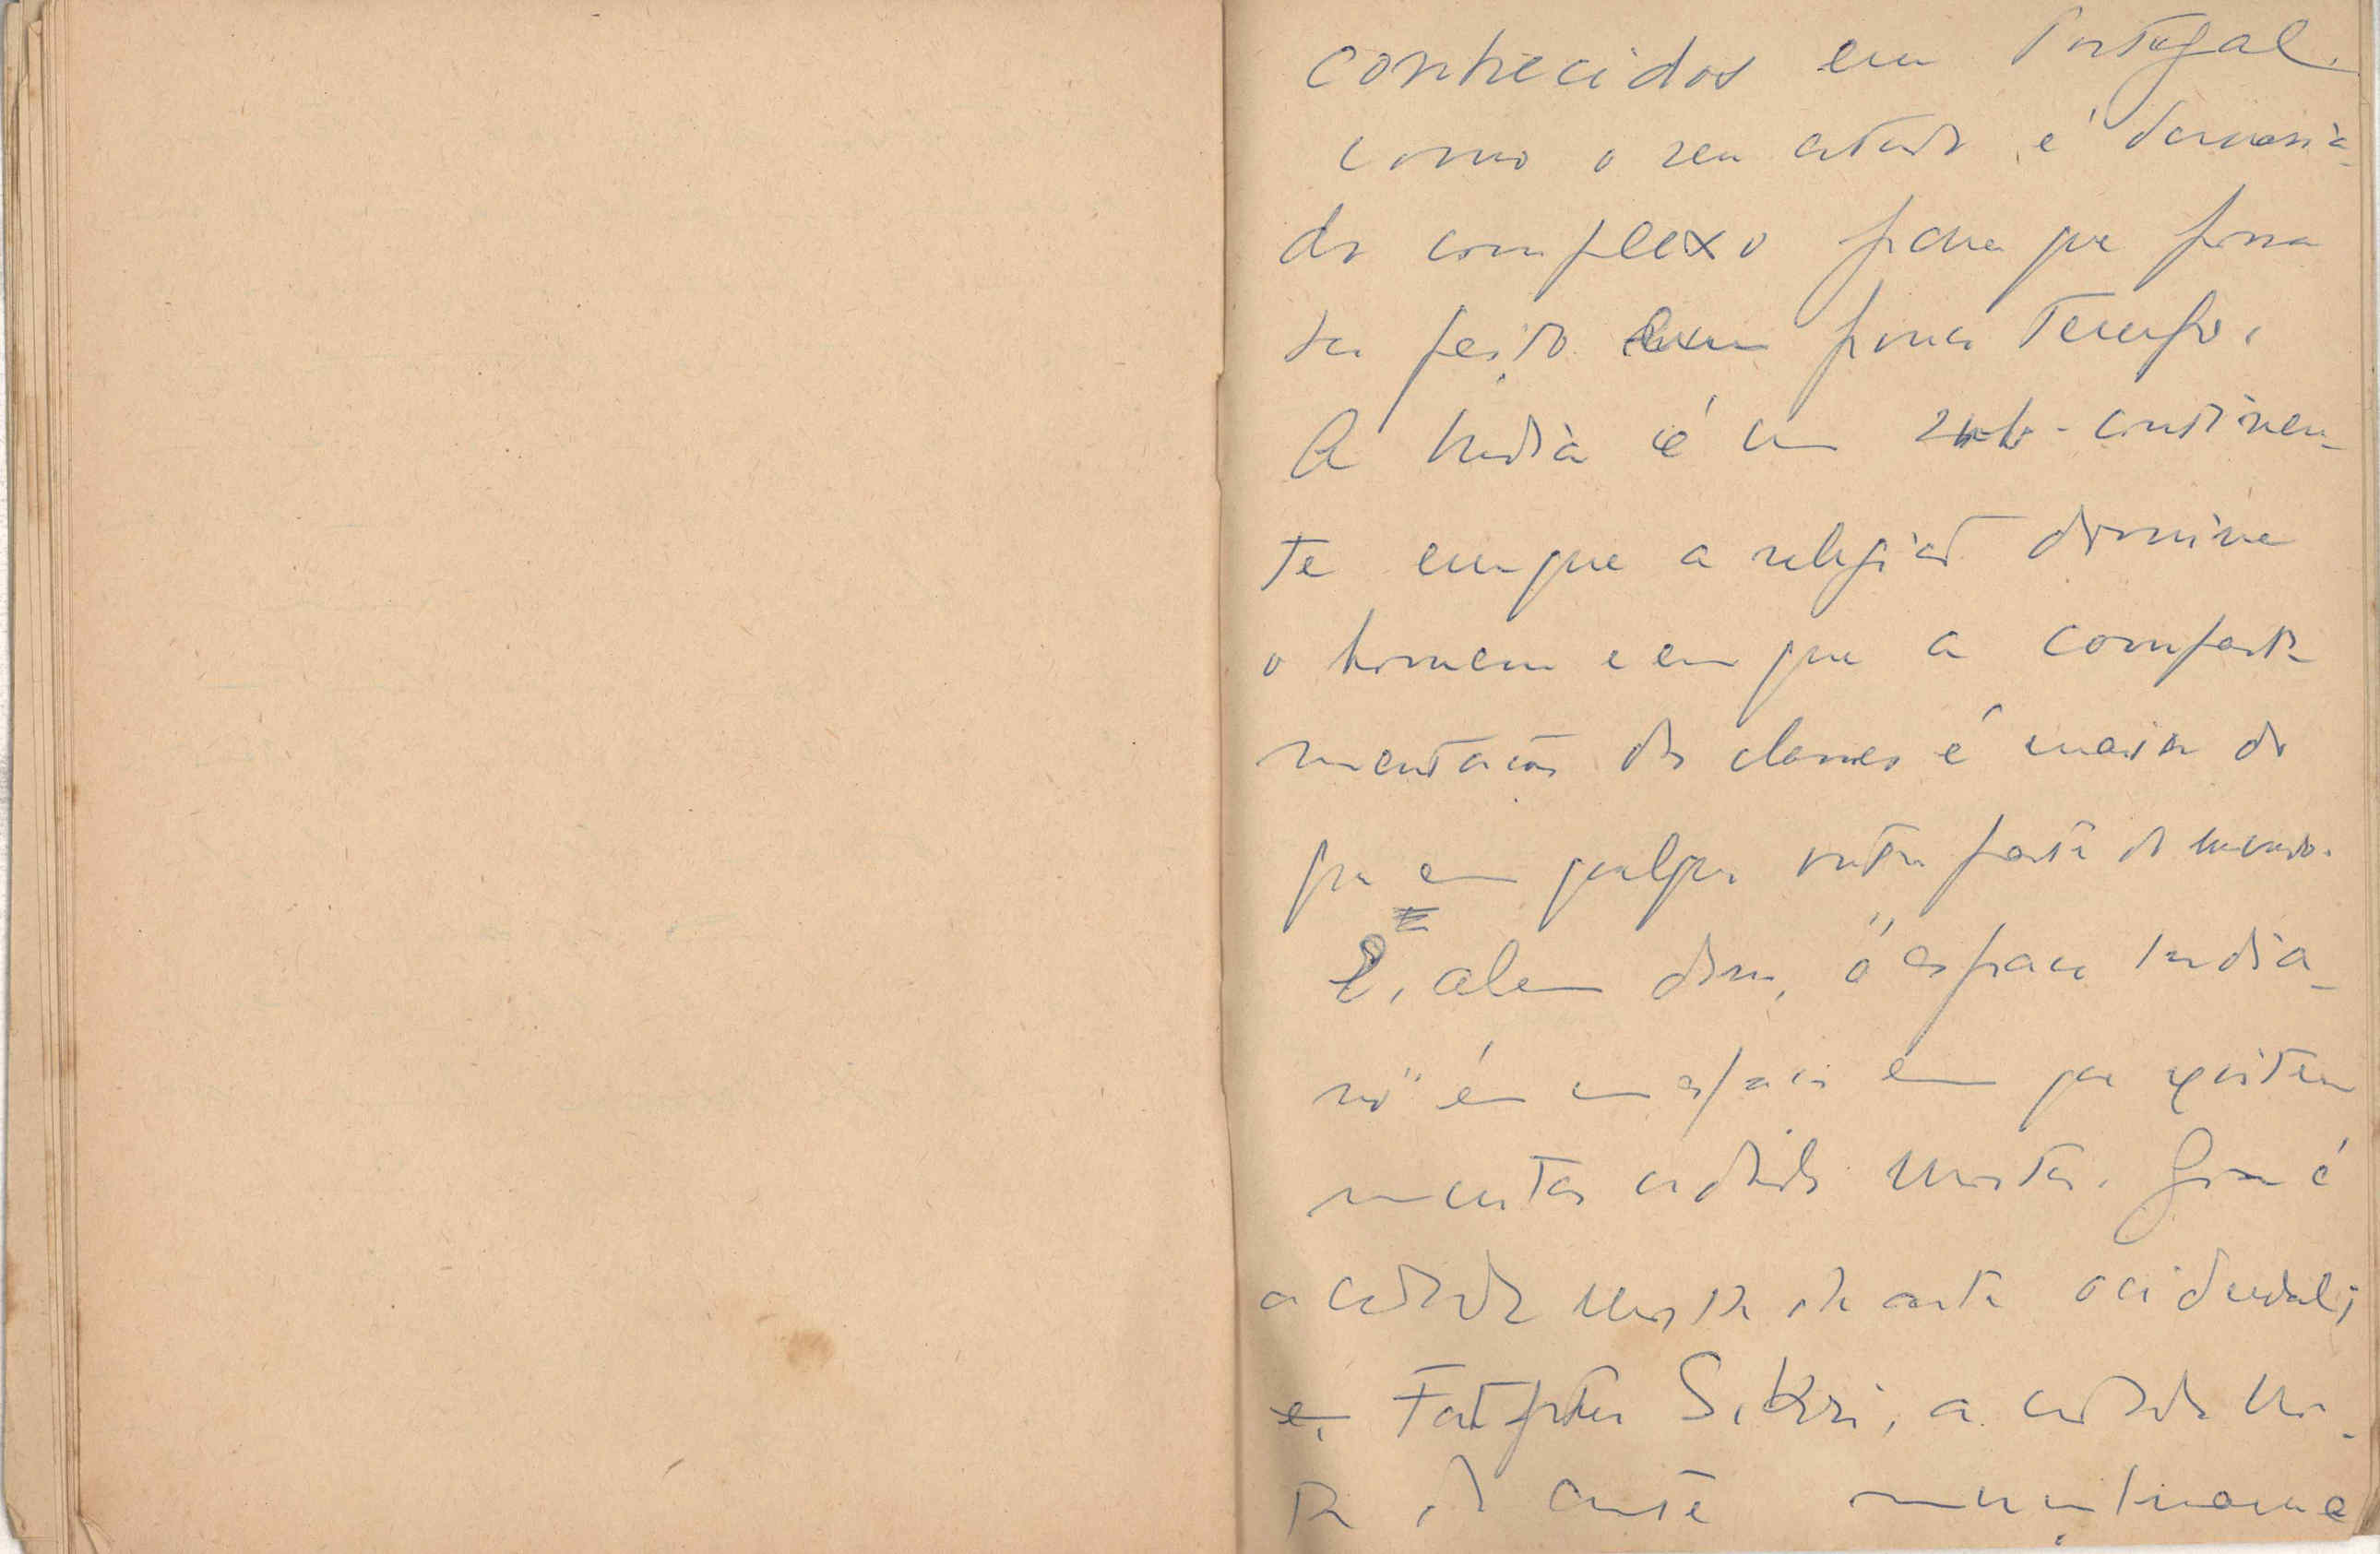 conhecidos em Portugal.
como o seu estudo é demasia-
do complexo para que possa
ser feito em pouco tempo.
A India é um sub-continen-
te em que a religião domina
o homem e em que a comparti-
mentação das classes é maior do
que em qualquer outra parte do mundo.
E, alem disso, o "espaço India-
no" é um espaço em que existem
muitas cidades mortas. Goa é
a cidade morta da arte ocidental;
e, Fatehpur Sikri, a cidade mor-
ta da arte muçulmana